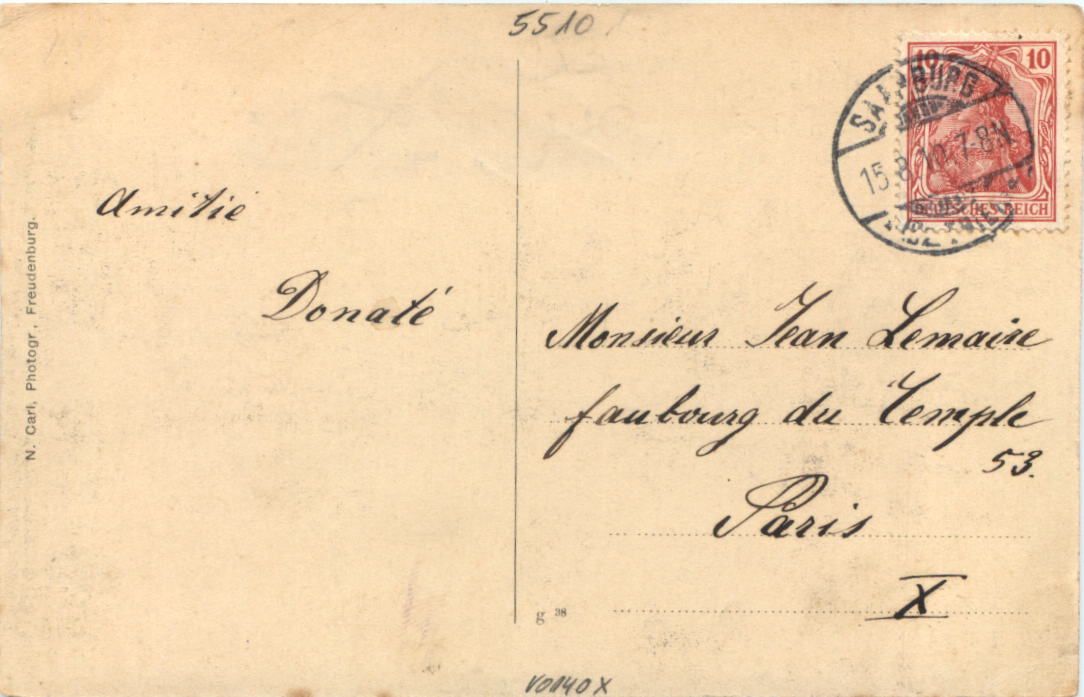 5510
10 10
DEUTSCHES REICH
SAARBURG
15.8.10.7-8N
(BZ. TRIER)
Amitié
Donaté
Monsieur Jean Lemaire
faubourg du Temple
53.
Paris
X
N. Carl, Photogr., Freudenburg.
g 38
V0140X